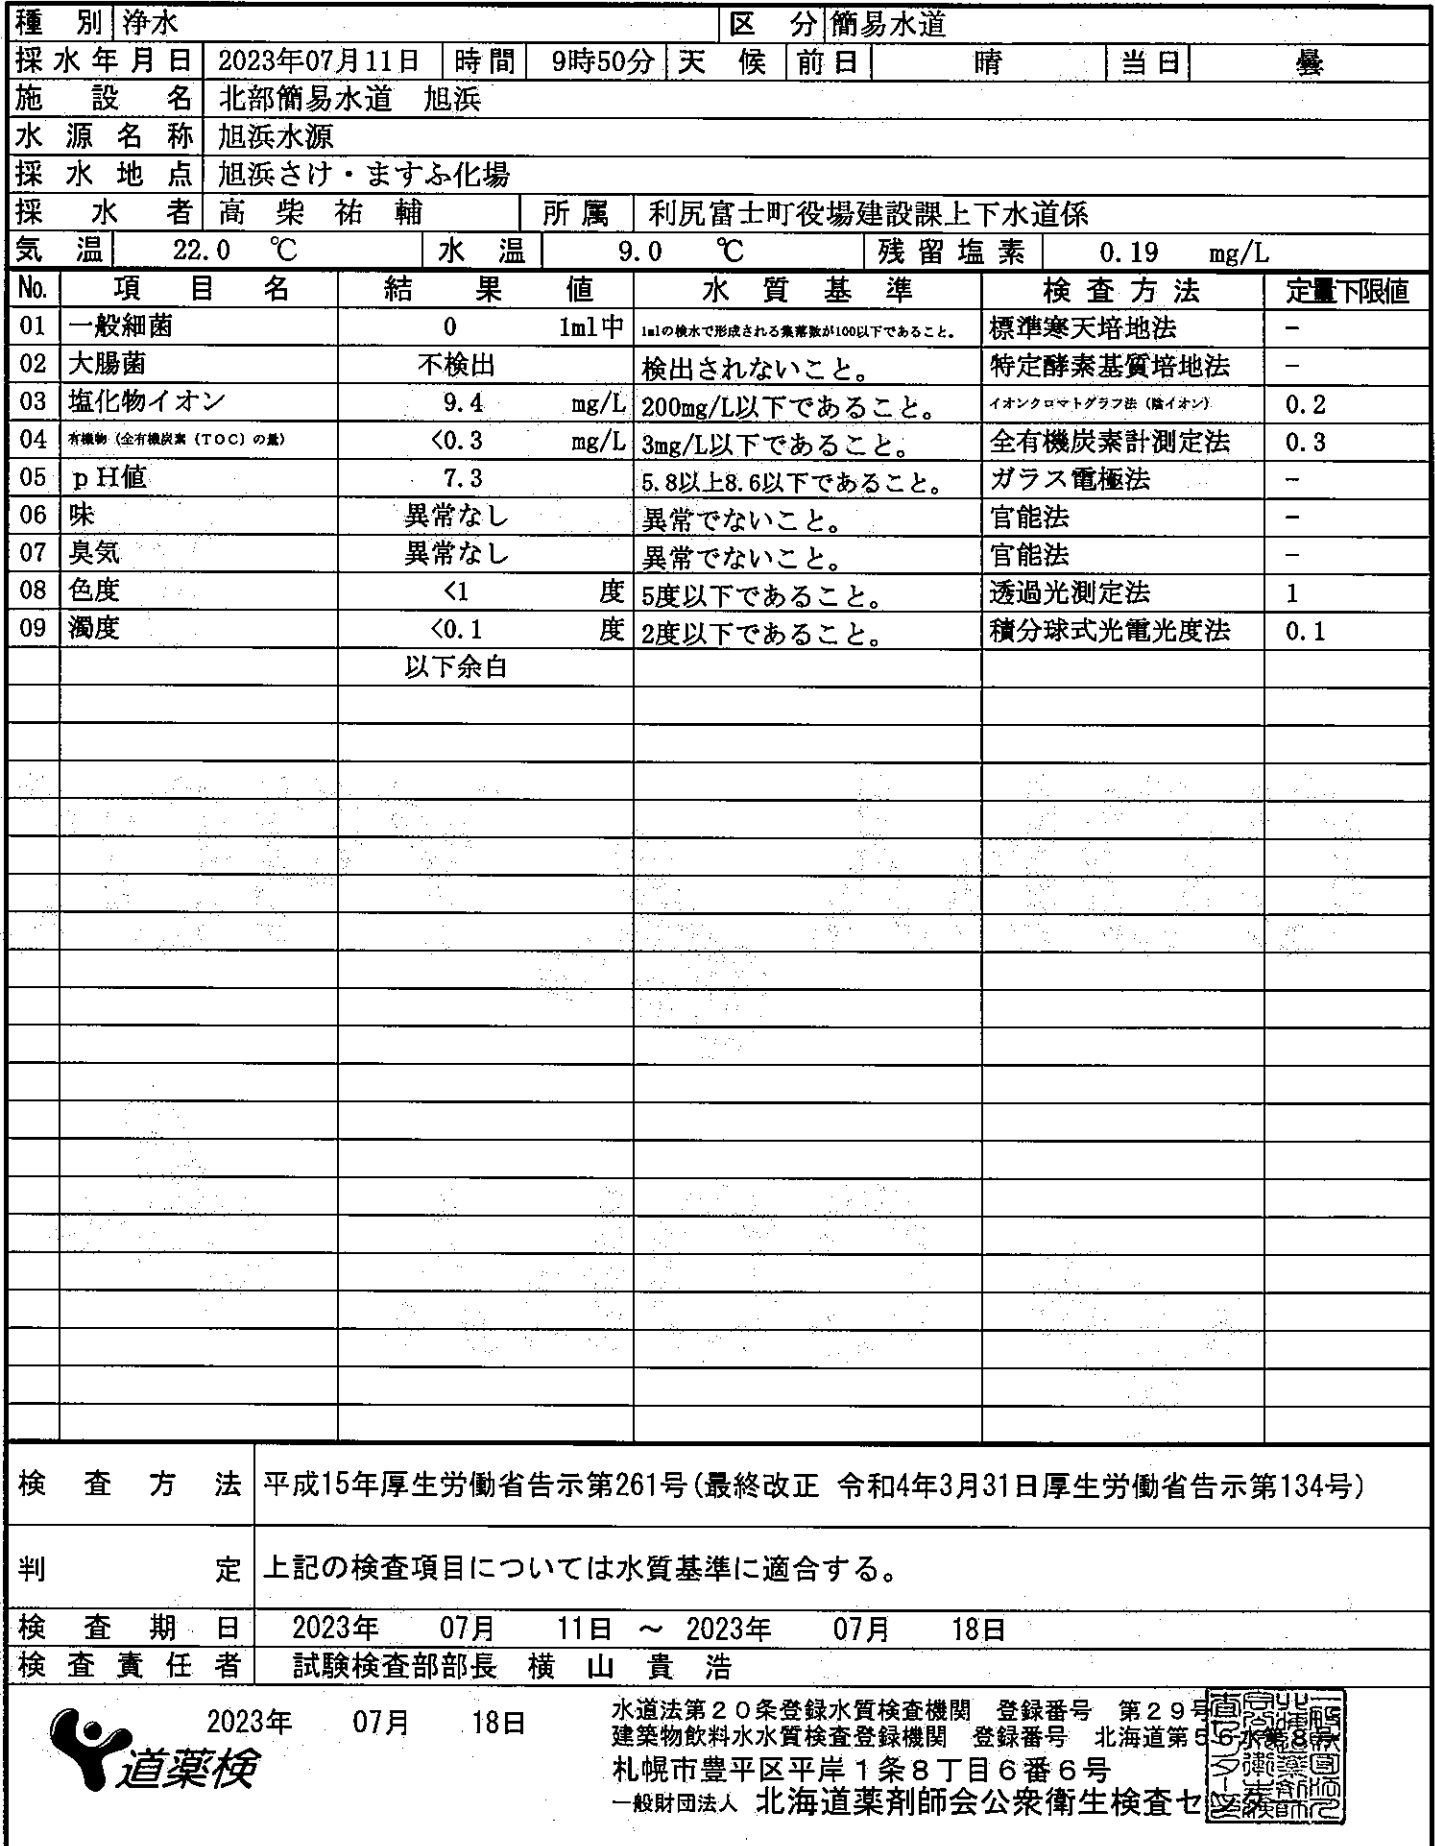 種別 浄水 区分 簡易水道
採水年月日 2023年07月11日 時間 9時50分 天候 前日 晴 当日 曇
施設名 北部簡易水道 旭浜
水源名称 旭浜水源
採水地点 旭浜さけ・ますふ化場
採水者 高柴祐輔 所属 利尻富士町役場建設課上下水道係
気温 22.0 ℃ 水温 9.0 ℃ 残留塩素 0.19 mg/L
No. 項目名 結果値 水質基準 検査方法 定量下限値
01 一般細菌 0 1ml中 1mlの検水で形成される集落数が100以下であること。 標準寒天培地法 −
02 大腸菌 不検出 検出されないこと。 特定酵素基質培地法 −
03 塩化物イオン 9.4 mg/L 200mg/L以下であること。 イオンクロマトグラフ法（陰イオン） 0.2
04 有機物（全有機炭素（TOC）の量） <0.3 mg/L 3mg/L以下であること。 全有機炭素計測定法 0.3
05 pH値 7.3 5.8以上8.6以下であること。 ガラス電極法 −
06 味 異常なし 異常でないこと。 官能法 −
07 臭気 異常なし 異常でないこと。 官能法 −
08 色度 <1 度 5度以下であること。 透過光測定法 1
09 濁度 <0.1 度 2度以下であること。 積分球式光電光度法 0.1
以下余白
検査方法 平成15年厚生労働省告示第261号(最終改正 令和4年3月31日厚生労働省告示第134号)
判定 上記の検査項目については水質基準に適合する。
検査期日 2023年 07月 11日 ～ 2023年 07月 18日
検査責任者 試験検査部部長 横山貴浩
2023年 07月 18日
道薬検
水道法第２０条登録水質検査機関 登録番号 第２９号
建築物飲料水水質検査登録機関 登録番号 北海道第５６水第８号
札幌市豊平区平岸１条８丁目６番６号
一般財団法人 北海道薬剤師会公衆衛生検査セ